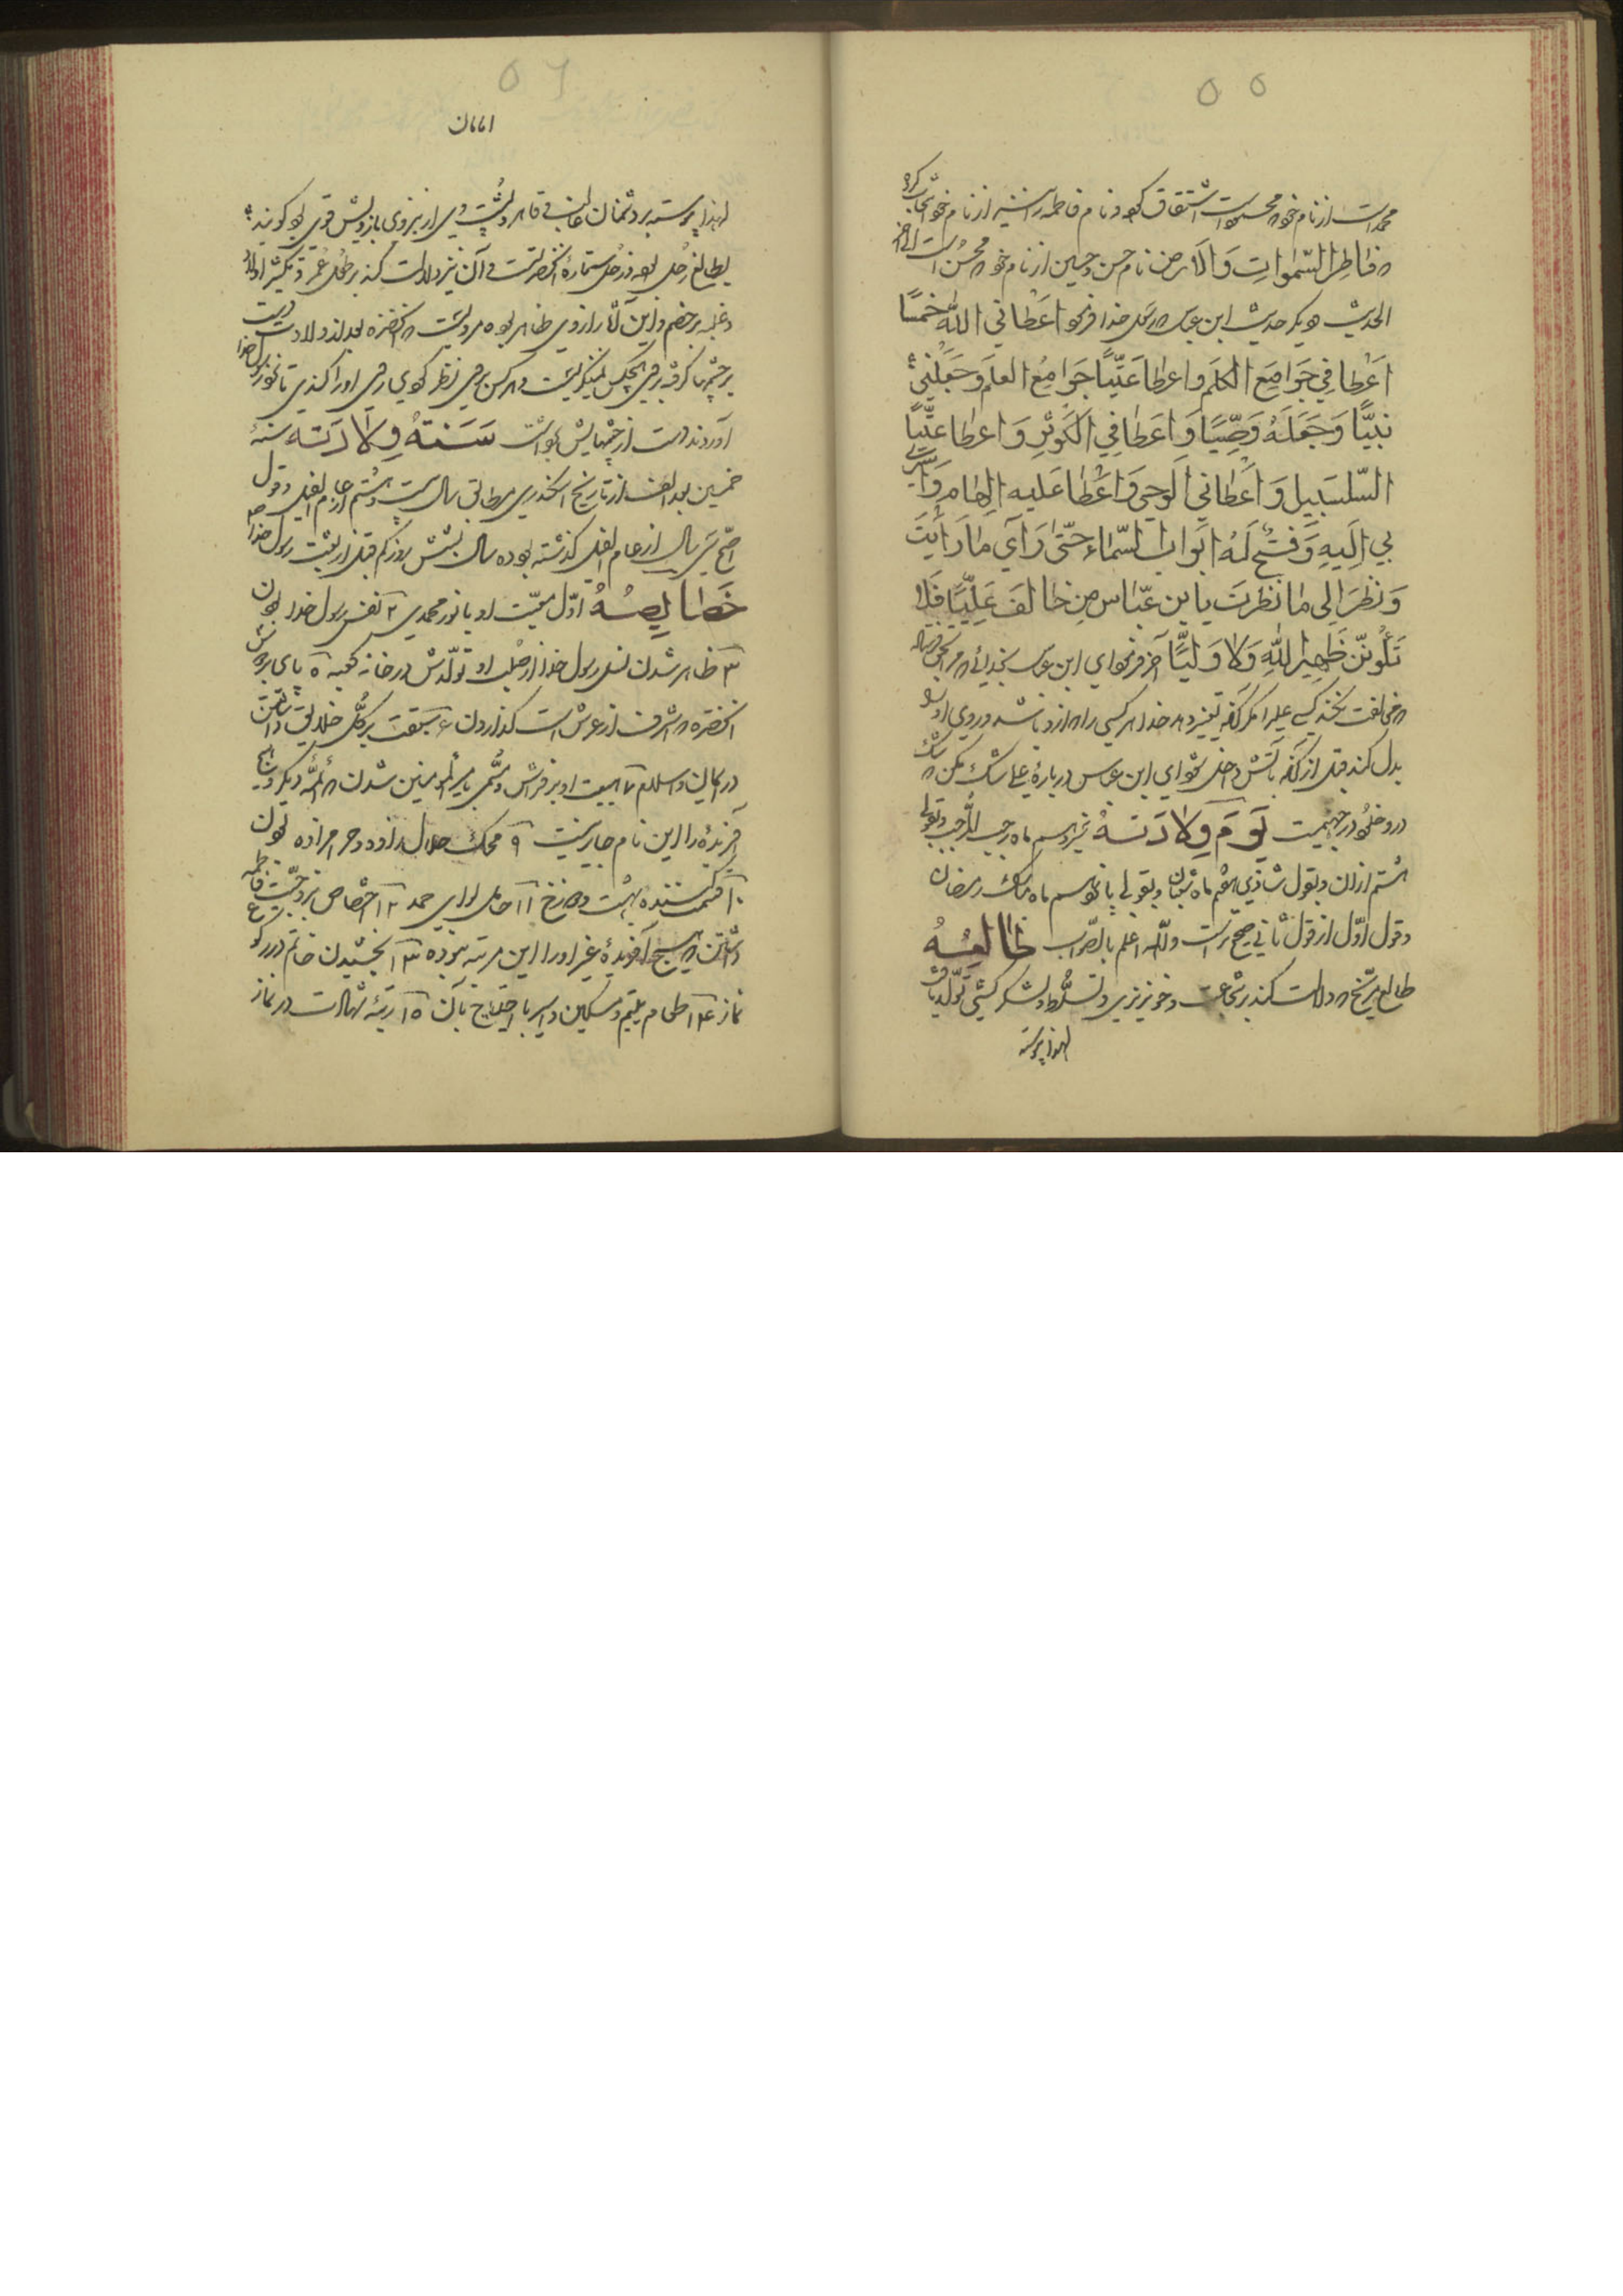 ۵۵
محمد است از نام خود که محمود است اشتقاق کرده و نام فاطمه را نیز از نام خود انتخاب کرده
که فاطِرِ السَّمٰواتِ وَالاَرض نام حسن و حسین از نام خود که محسن است
الحدیث دیگر حدیث ابن عباس که رسول خدا فرمود اَعْطانِي اللّٰهُ خَمسًا
اَعْطانِي جَوامِعَ الکَلَم واعطا عَلِیًّا جَوامِعُ العلم وَجَعَلَنِي
نَبِیًّا وَجَعَلَهُ وَصِیًّا وَاَعطانِي الکَوثَر وَاعطا عَلِیًّا
السَّلسَبیل وَاَعْطانِي الوَحي وَاَعْطا عَلیه الاِلهام وَاَسْرٰی
بي اِلَیهِ وَفَتَحَ لَهُ اَبوابَ السَّماء حَتّیٰ رَاٰي ما رَاَیتُ
وَنَظَرَ اِلی ما نَظَرتُ یا بن عَبّاس مَن خالَفَ عَلِیًّا فَلا
تَکُونَنَّ ظَهِیرًا لَهُ وَلا وَلِیًّا
مخالفت نکند کسی علی را مگر آنکه تغییر دهد خدا هر چیزی را که از او باشد و روی او را
بدل کند قبل از آنکه بآتش داخل شود ای ابن عباس درباره علی شک مکن که شک
در وی دخول در جهنمیست یَومَ وِلادَتهُ سیزدهم ماه رجب المرجب و بقولی
هشتم از آن و بقول شاذی هفتم ماه شعبان و بقولی پانزدهم ماه مبارک رمضان
و قول اوّل از قول ثانی صحیح تر است واللّه اعلم بالصّواب طالِعُهُ
طالع مرّیخ که دلالت کند بر شجاعت و خونریزی و تسلّط و لشکرکشی تولّد یافت
لهذا پیوسته
۵۶
لهذا پیوسته بر دشمنان غالب و قاهر و پُشت وی از نیروی بازویش قوی بود و گویند
بطالع زحل بود و زحل ستاره آنحضرتست و آن نیز دلالت کند بر طول عمر و تکثیر اولاد
و غلبه بر خصم و این آثار از وی ظاهر بود مرویست که آنحضرت بعد از ولادت دست
بر چشمها گرفته بر هیچکس نمینگریست
آوردند دست از چشمهایش برداشت سَنَةُ وِلادَته سنهٔ
خمسین بعد الف از تاریخ اسکندری مطابق سال بیست و هشتم از عام الفیل و قول
اصحّ سی سال از عام الفیل گذشته بوده
خَصایِصُهُ اوّل معیّت او با نور محمدی ۲ نفس رسول خدا بودن
۳ ظاهر شدن نسل رسول خدا از صلب او ۴ تولّدش در خانه کعبه ۵ پای بر دوش
آنحضرت که اشرف از عرش است گذاردن ۶ سبقت بر کُلّ خلایق داشتن
در ایمان و اسلام ۷ بیتوت او بر فراش ۸ مُسمّی بامیر المؤمنین شدن که ائمّه دیگر و هیچ
آفریدهٔ را این نام جایز نیست ۹ محک حلال زاده و حرامزاده بودن
۱۰ قسمت کننده بهشت و دوزخ ۱۱ حامل لوای حمد ۱۲ اختصاص بزوجیّت فاطمه
داشتن که هیچ آفریدهٔ غیر او را این مرتبه نبوده ۱۳ بخشیدن خاتم در رکوع
نماز ۱۴ طعام یتیم و مسکین و اسیر با احتیاج بآن ۱۵ رتبهٔ شهادت در نماز